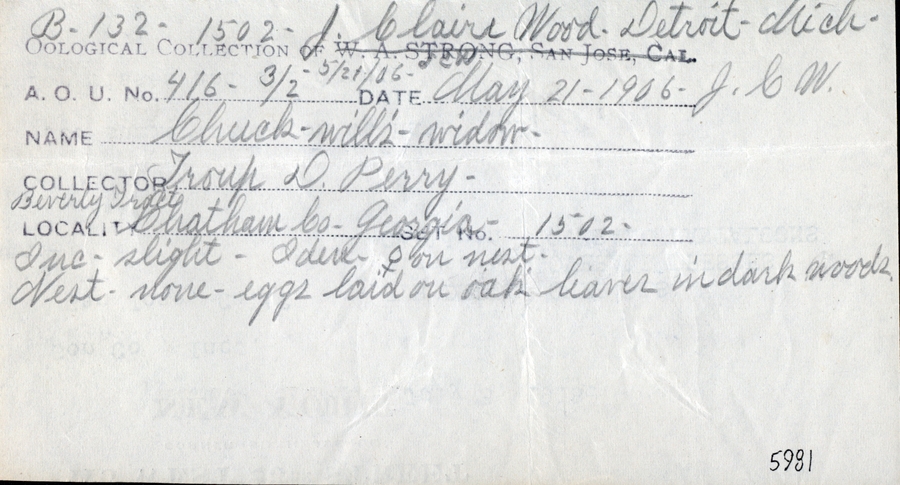 B-132- 1502- J. Claire Wood- Detroit- Mich-
OOLOGICAL COLLECTION OF W. A. STRONG, SAN JOSE, CAL.
A. O. U. No. 416- 3/2- 5/21/06- JCW. DATE May 21-1906- J. C W.
NAME Chuck-will's-widow-
COLLECTOR Troup D. Perry-
Beverly Tract
LOCALITY Chatham Co- Georgia- SET No. 1502-
Inc- slight- Iden- ♀ on nest-
Nest- none- eggs laid on oak leaves in dark woods
5981